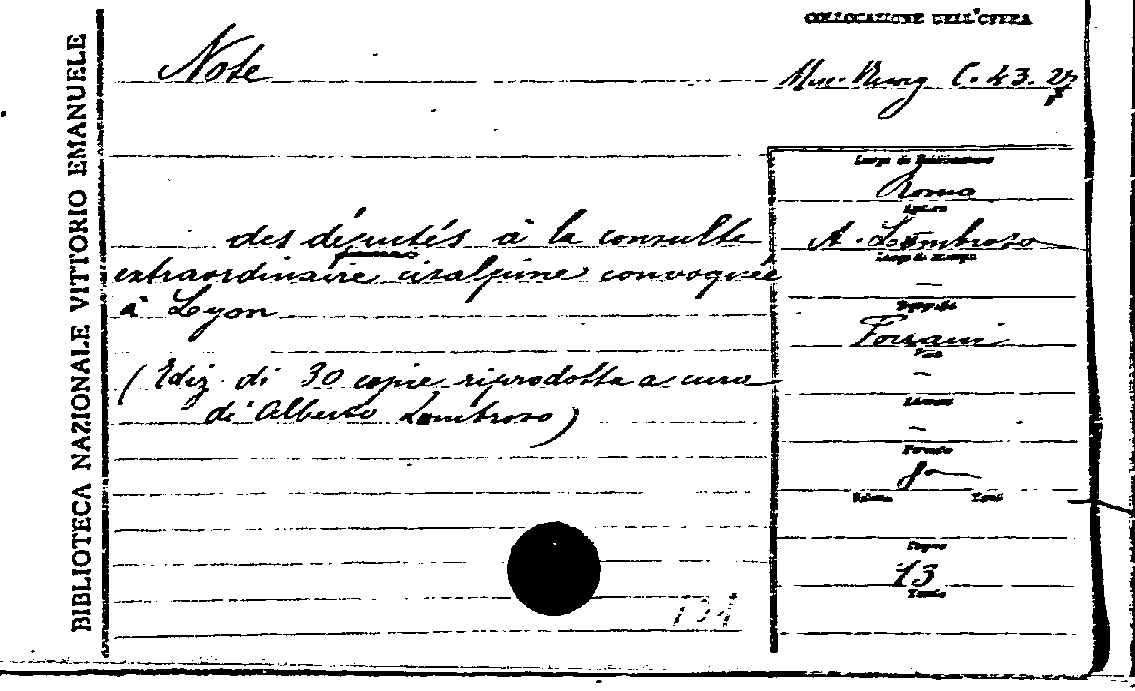 BIBLIOTECA NAZIONALE VITTORIO EMANUELE
COLLOCAZIONE DELL'OPERA
Note
C. 43. 27
Luogo di Pubblicazione
Roma
Editore
des députés à la consulte
A. Lombroso
Luogo di Stampa
extraordinaire cisalpine convoquée
—
à Lyon
Tipografia
Forzani
Data
(Ediz. di 30 copie riprodotta a cura
—
di Alberto Lombroso)
—
Formato
8º
Volume
Tomi
Pagine
13
Tavole